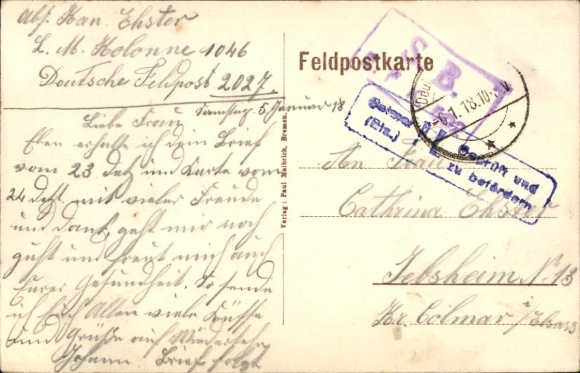 Abs. Kan. Ehster
L. M. Kolonne 1046
Deutsche Feldpost 2027
Samstag 5 Januar 18
Liebe Frau
Eben erhalte ich dein Brief
vom 23 Dez und Karte vom
24 Dez. mit vieler Freude
und Dank, geht mir noch
guht und freut mich auch
Eurer Gesundheit. So sende
ich Euch Allen viele Küsse
und Grüße auf Wiedersehn
Johann. Brief folgt
Verlag: Paul Malbrich, Bremen.
Feldpostkarte
B.
-6.1.18.10-
Geprüft und
zu befördern
An Frau
Cathrina Ehster
Jebsheim No 13
Kr. Colmar i/Elsass